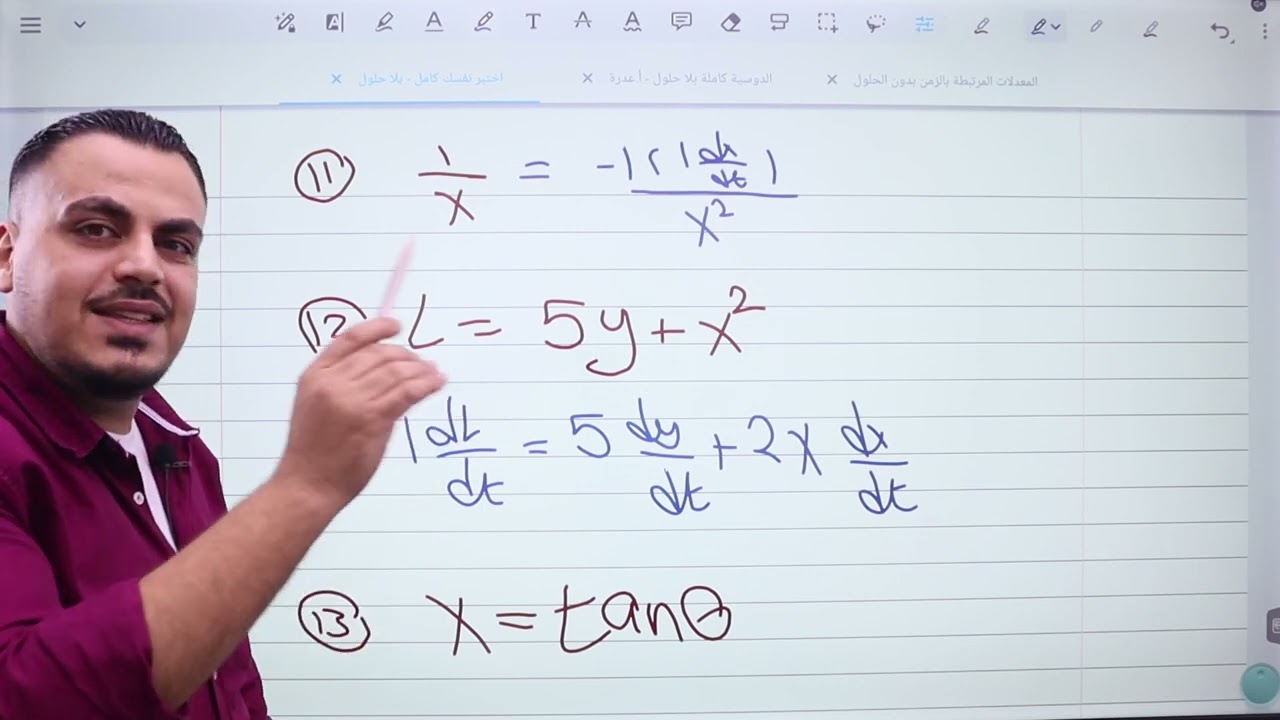 اختبر نفسك كامل - بلا حلول × الدوسية كاملة بلا حلول - أ.عدرة × المعدلات المرتبطة بالزمن بدون الحلول ×
⑪ 1/x = -1(1 dx/dt)/x²
⑫ L = 5y + x²
1 dL/dt = 5 dy/dt + 2x dx/dt
⑬ x = tanθ